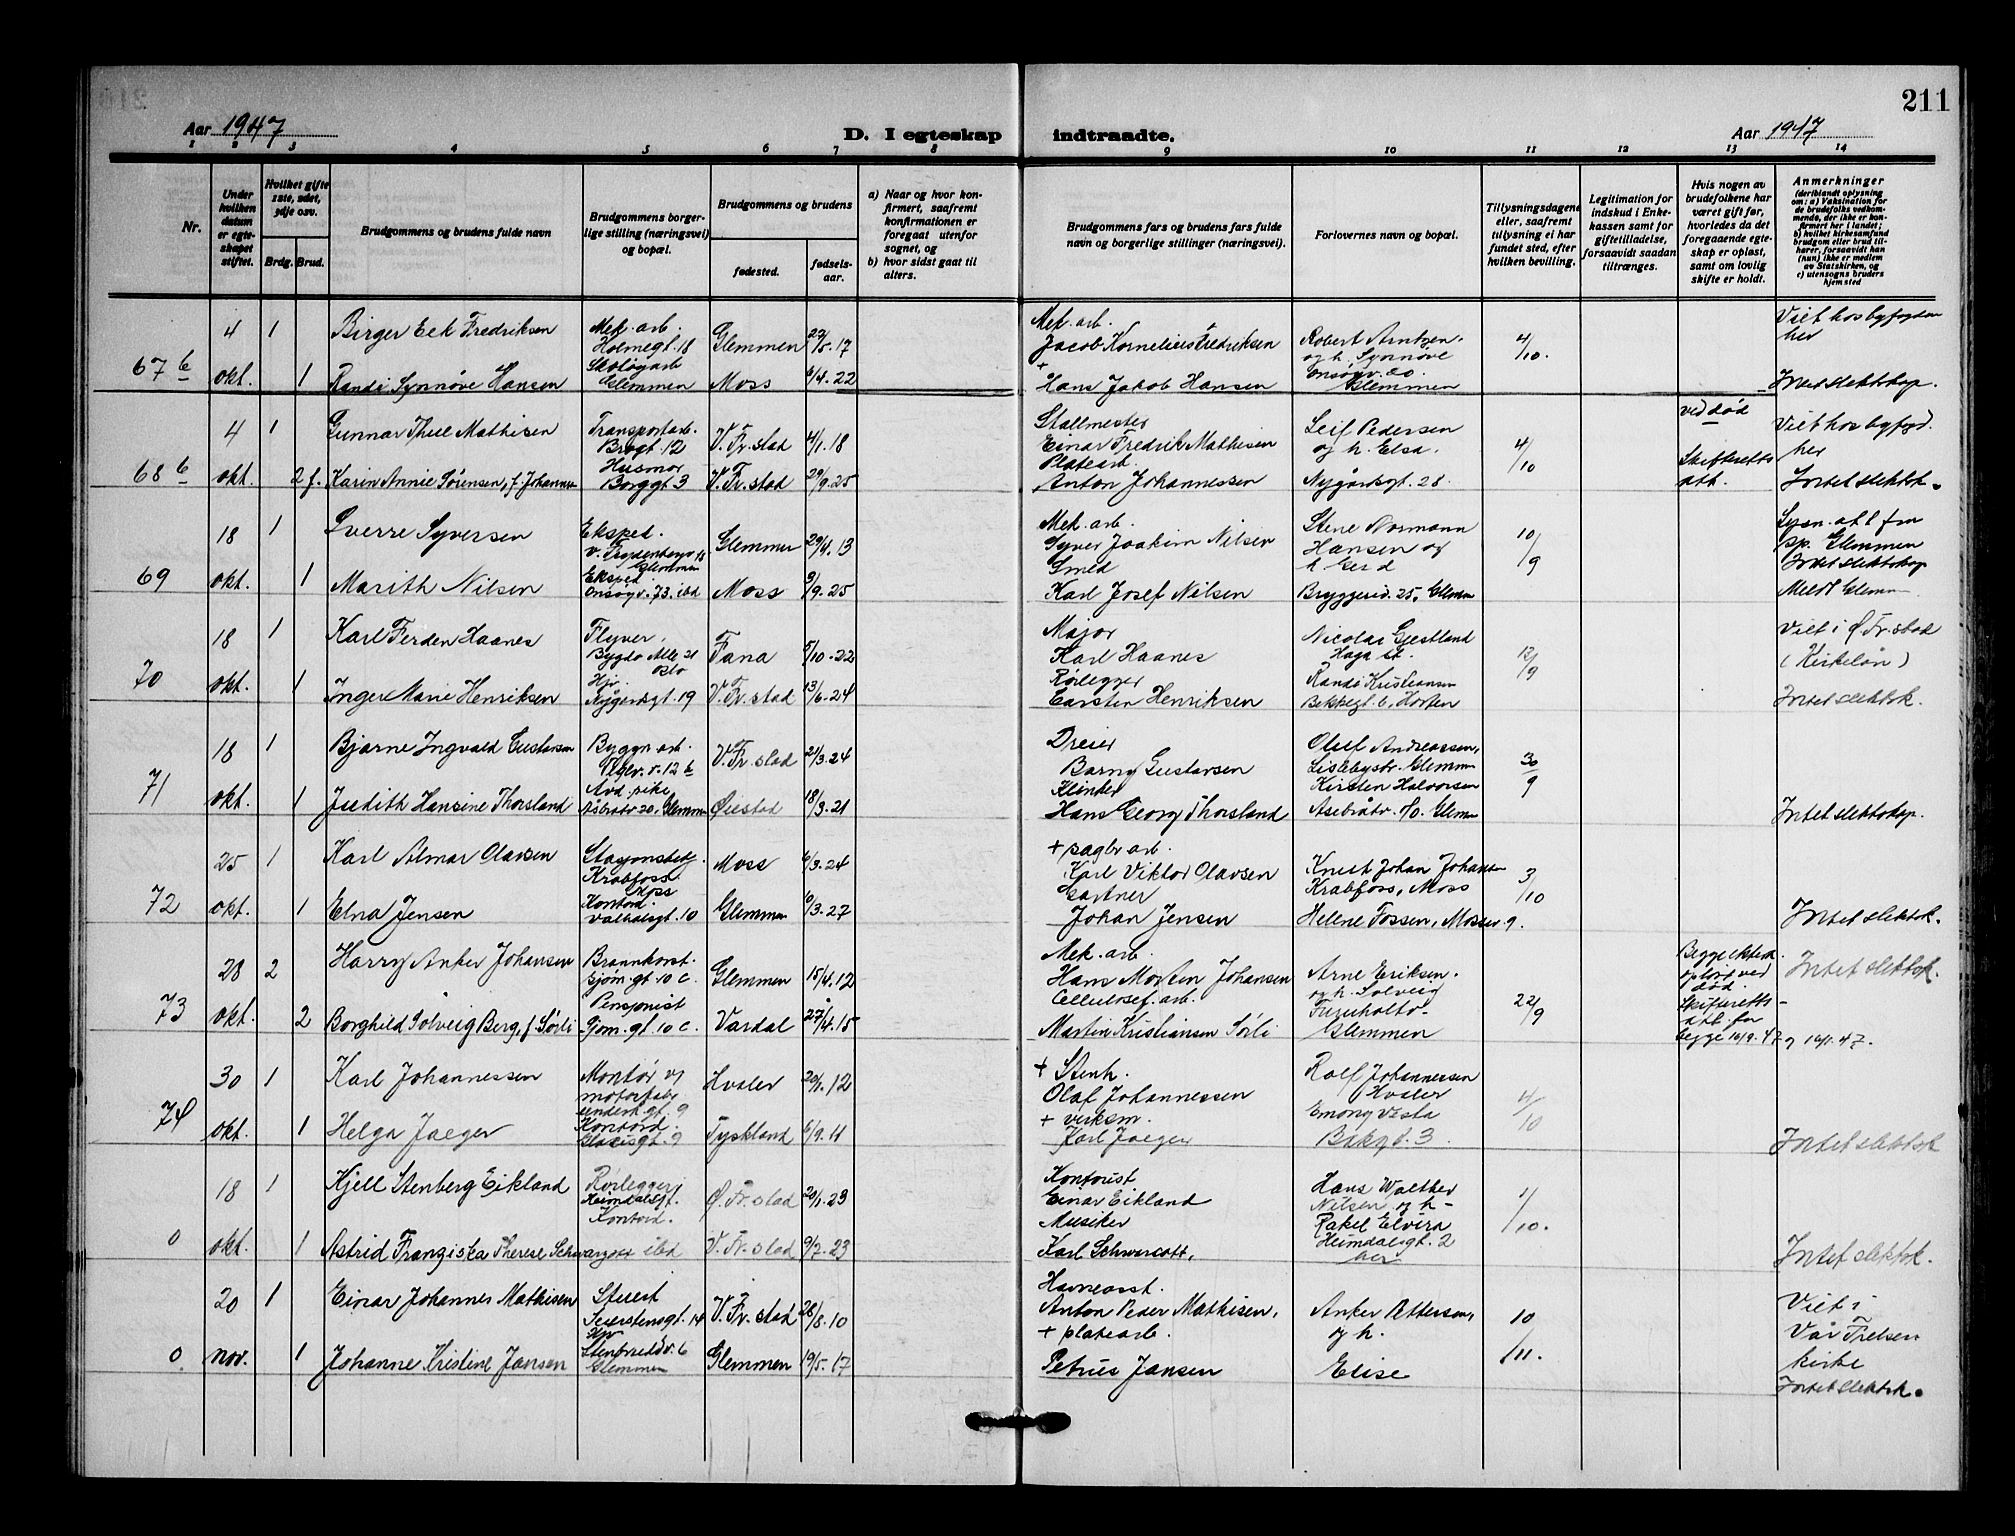 211
Aar 1947
D. I egteskap indtraadte.
Aar 1947
1 2 3 4 5 6 7 8 9 10 11 12 13 14
Nr.
Under hvilken datum er egteskapet stiftet.
Hvilket gifte 1ste, 2det, 3dje osv.
Brdg. Brud.
Brudgommens og brudens fulde navn
Brudgommens borgerlige stilling (næringsvei) og bopæl.
Brudgommens og brudens
fødested.
fødselsaar.
a) Naar og hvor konfirmert, saafremt konfirmationen er foregaat utenfor sognet, og
b) hvor sidst gaat til alters.
Brudgommens fars og brudens fars fulde navn og borgerlige stillinger (næringsvei).
Forlovernes navn og bopæl.
Tillysningsdagene eller, saafremt tillysning ei har fundet sted, efter hvilken bevilling.
Legitimation for indskud i Enkekassen samt for giftetilladelse, forsaavidt saadan tiltrænges.
Hvis nogen av brudefolkene har været gift før, hvorledes da det foregaaende egteskap er opløst, samt om lovlig skifte er holdt.
Anmerkninger
(deriblandt oplysning om: a) Vaksination for de brudefolks vedkommende, der ikke er konfirmert her i landet;
b) hvilket kirkesamfund brudgom eller brud tilhører, forsaavidt han (hun) ikke er medlem av Statskirken, og
c) utensogns bruders hjemsted
67 b
4 okt.
1
Birger Eek Fredriksen
Mek. arb.
Holmegt. 18
Glemmen
22/5. 17
Mek. arb.
Jacob Kornelius Fredriksen
Robert Arntzen
og h. Synnøve
4/10.
Viet hos byfogden
her
1
Randi Synnøve Hansen
Skotøyarb
Glemmen
Moss
6/4. 22
+
Hans Jakob Hansen
Glemmen
Intet slektskap.
68 b
4 okt.
1
Gunnar Thue Mathisen
Transportarb.
Brogt. 12
V. Fr. stad
4/1. 18
Stallmester
Einar Fredrik Mathisen
Leif Pedersen
og h. Elsa.
4/10
ved død
Viet hos byfogd.
her
2 f.
Karin Annie Sørensen, f. Johannsen
Husmor
Borggt 3
V. Fr. stad
29/9. 25
Platearb.
Anton Johannessen
Nygårdsgt. 28.
Skifteretts
att.
Intet slektsk.
69
18 okt.
1
Sverre Syversen
Eksped.
Glemmen
Glemmen
29/4. 13
Mek. arb.
Syver Joakim Nilsen
Stene Normann
Hansen og
h Gerd
10/9
Lysn. att fra
sp. Glemmen
Intet slektskap
1
Marith Nilsen
Eksped.
Onsøyv. 73. ibd
Moss
3/9. 25
Smed
Karl Josef Nilsen
Bryggeriv. 25, Glemm
Meldt Glemm
70
18 okt.
1
Karl Ferden Haanes
Flyver,
Bygdø Alle 21
Oslo
Fana
5/10. 22
Major
Karl Haanes
Nicolas Gjestland
Haga st.
12/9
Viet i Ø. Fr. stad
(Kirkeløn)
1
Inger Marie Henriksen
Hjv.
Nygårdsgt. 19
V. Fr. stad
13/6. 24
Rørlegger
Carsten Henriksen
Randi Kristiansen
Bekkegt. 6, Horten
Intet slektsk.
71
18 okt.
1
Bjarne Ingvald Gustavsen
Byggn. arb.
V. Fr. stad
21/3. 24
Dreier
Barny Gustavsen
Oluf Andreassen,
Lislebystr. Glemm
30/9
1
Judith Hansine Thorsland
Avd. pike
Åsbråtr 20. Glemm
Øiestad
18/3. 21
Hans Georg Thorsland
Kirsten Halvorsen
Glemm
Intet slektskap.
72
25 okt.
1
Karl Almar Olavsen
Stasjonsbetj.
Krabfoss
Moss
Moss
6/3. 24
+ sagbr arb.
Karl Viktor Olavsen
Knut Johan Johansen
Krabfoss, Moss
3/10
1
Elna Jensen
Kontord.
Valhalsgt. 10
Glemmen
6/3. 27
Gartner
Johan Jensen
Helene Fossen, Mossev 9.
Intet slektsk.
73
28 okt.
2
Harry Anker Johansen
Brannkonst.
Gjøm. gt 10 c.
Glemmen
15/4. 12
Mek. arb.
Hans Morten Johansen
Arne Eriksen.
og h. Solveig
22/9
Begge ektesk
opløst ved
død.
Intet slektsk.
2
Borghild Solveig Berg, f. Sørli
Pensjonist
Gjøm. gt 10 c.
Vardal
27/4. 15
Cellulosef. arb.
Martin Kristiansen Sørli
Glemmen
Skifteretts-
att. for
begge 10/9. 47 og 16/1. 47.
74
30 okt.
1
Karl Johannessen
Montør v/
motorfabr
Hvaler
20/1. 12
+ Stenh.
Olaf Johannessen
Rolf Johannessen
Hvaler
4/10
1
Helga Jaeger
Kontord.
Glacisgt. 9
Tyskland
6/9. 11
+ verksm.
Karl Jaeger
Emony Vista
3.
Intet slektsk
0
18 okt.
1
Kjell Stenberg Eikland
Rørlegger
Heimdalsgt.
Ø. Fr. stad
20/1. 23
Kontorist
Einar Eikland
Hans Walther
Nilsen og h -
1/10.
1
Astrid Franziska Therese Schwarzott
Kontord.
ibd
V. Fr. stad
9/7. 23
Musiker
Karl Schwarzott,
Rakel Elvira
Heimdalsgt. 2
her
Intet slektsk.
0
20 nov.
1
Einar Johannes Mathisen
Stuert
Seierstensgt. 14
V. Fr. stad
28/8. 10
Havneasst.
Anton Peder Mathisen,
Anker Pettersen,
og h.
10/11.
Viet i
Vår Frelsers
kirke
1
Johanne Kristine Jansen
Hjv
Stenbruddv. 6
Glemmen
Glemmen
19/5. 17
+ platearb.
Petrus Jansen
Elise
Intet slektsk.